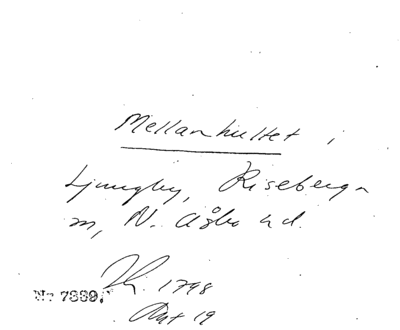 Mellanhultet i
Ljungby, Riseberga
sn, N. Åsbo hd.
1798
No 7880.
Akt 19